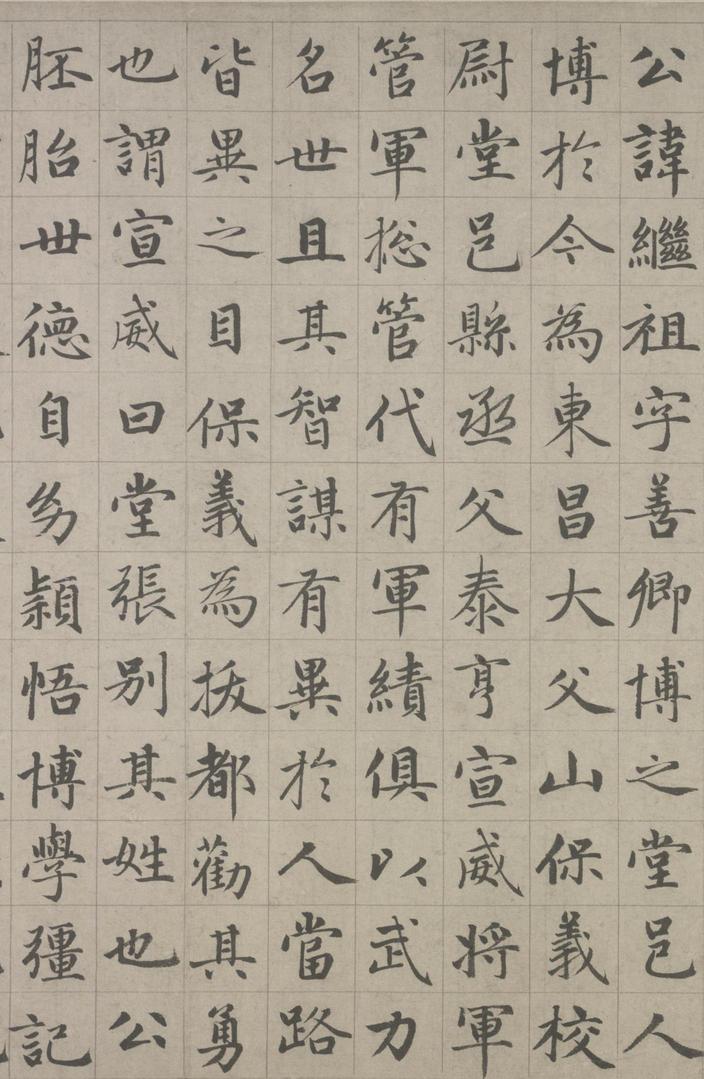 公諱繼祖字善卿博之堂邑人
博於今為東昌大父山保義校
尉堂邑縣丞父泰亨宣威将軍
管軍捴管代有軍績俱以武力
名世且其智謀有異於人當路
皆異之目保義為拔都勸其勇
也謂宣威曰堂張别其姓也公
胚胎世德自㓜頴悟博學彊記